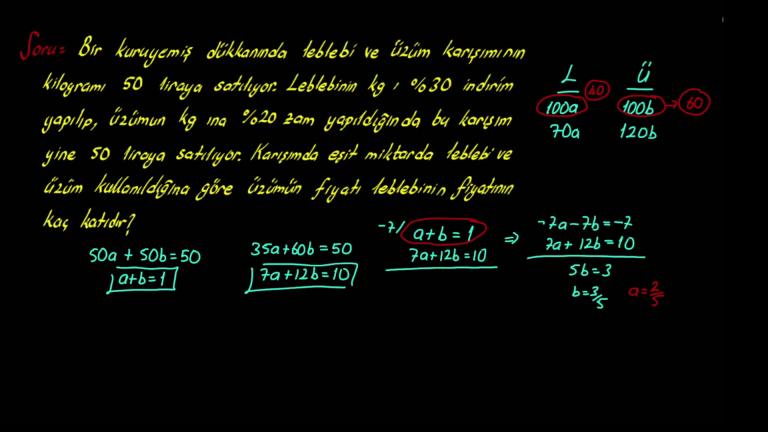 Soru= Bir kuruyemiş dükkanında leblebi ve üzüm karışımının
kilogramı 50 liraya satılıyor. Leblebinin kg ı %30 indirim
yapılıp, üzümün kg ına %20 zam yapıldığında bu karışım
yine 50 liraya satılıyor. Karışımda eşit miktarda leblebi ve
üzüm kullanıldığına göre üzümün fiyatı leblebinin fiyatının
kaç katıdır?
L Ü
40
100a 100b → 60
70a 120b
50a + 50b = 50
a+b=1
35a+60b=50
7a+12b=10
-7/ a+b=1
7a+12b=10
⇒ -7a-7b=-7
7a+12b=10
5b=3
b=3/5 a=2/5